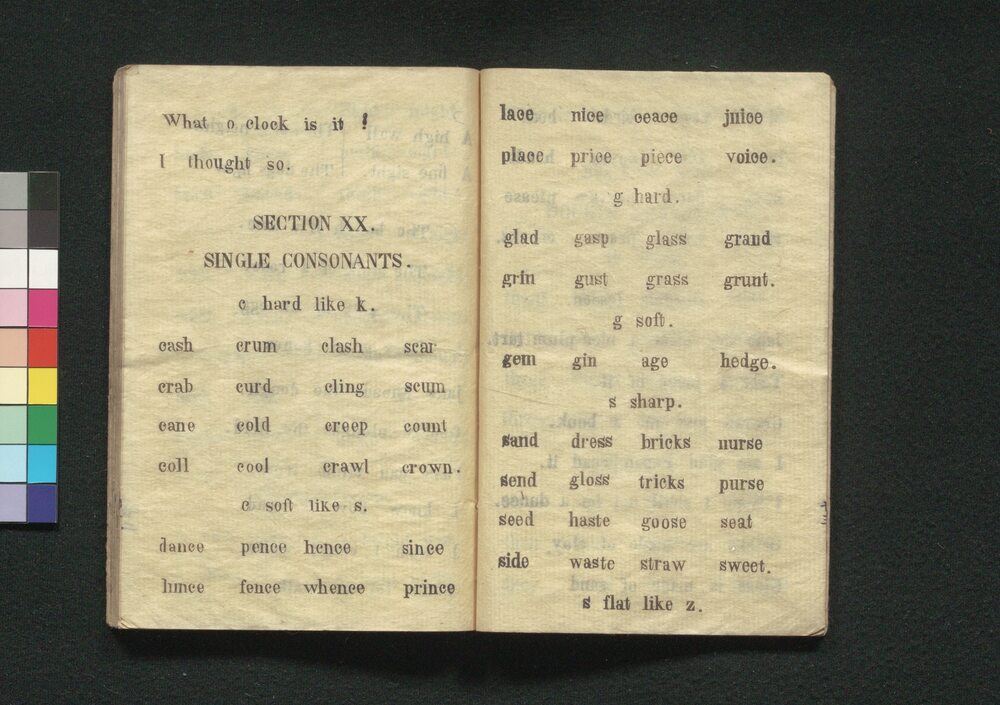 What o clock is it ?
I thought so.
SECTION XX.
SINGLE CONSONANTS.
c hard like k.
cash crum clash scar
crab curd cling scum
cane cold creep count
coll cool crawl crown.
c soft like s.
dance pence hence since
fence whence prince
lace nice ceace juice
place price piece voice.
g hard.
glad gasp glass grand
grin gust grass grunt.
g soft.
gem gin age hedge.
s sharp.
sand dress bricks nurse
send gloss tricks purse
seed haste goose seat
side waste straw sweet.
s flat like z.